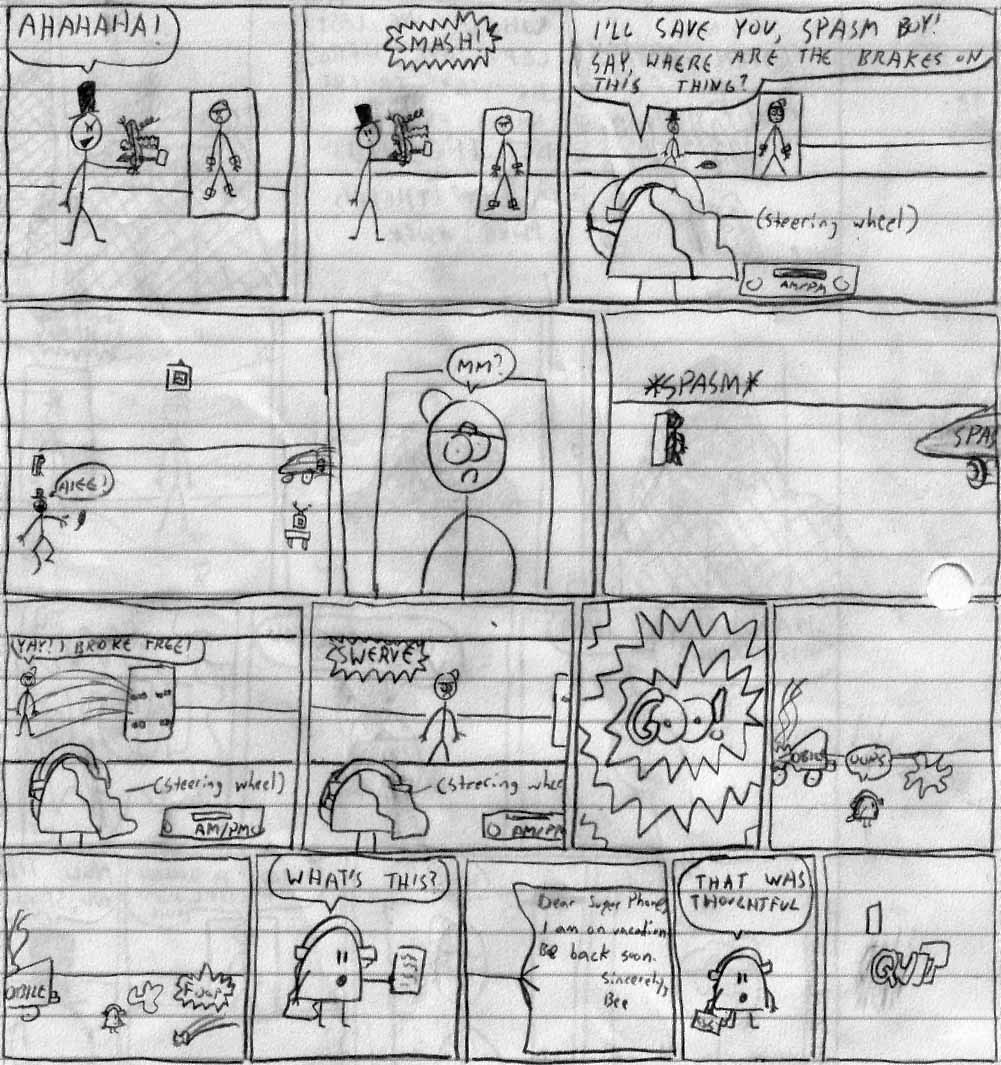 AHAHAHA!
SMASH!
I'LL SAVE YOU, SPASM BOY!
SAY, WHERE ARE THE BRAKES ON
THIS THING?
(steering wheel)
AM/PM
AIEE!
MM?
*SPASM*
SPAS
YAY! I BROKE FREE!
(steering wheel)
AM/PM
SWERVE
(steering whee
AM/PM
GOO!
OBILE
OOPS
OBILE
WHAT'S THIS?
Dear Super Phone,
I am on vacation
Be back soon.
Sincerely,
Bee
THAT WAS
THOUGHTFUL
QUIT